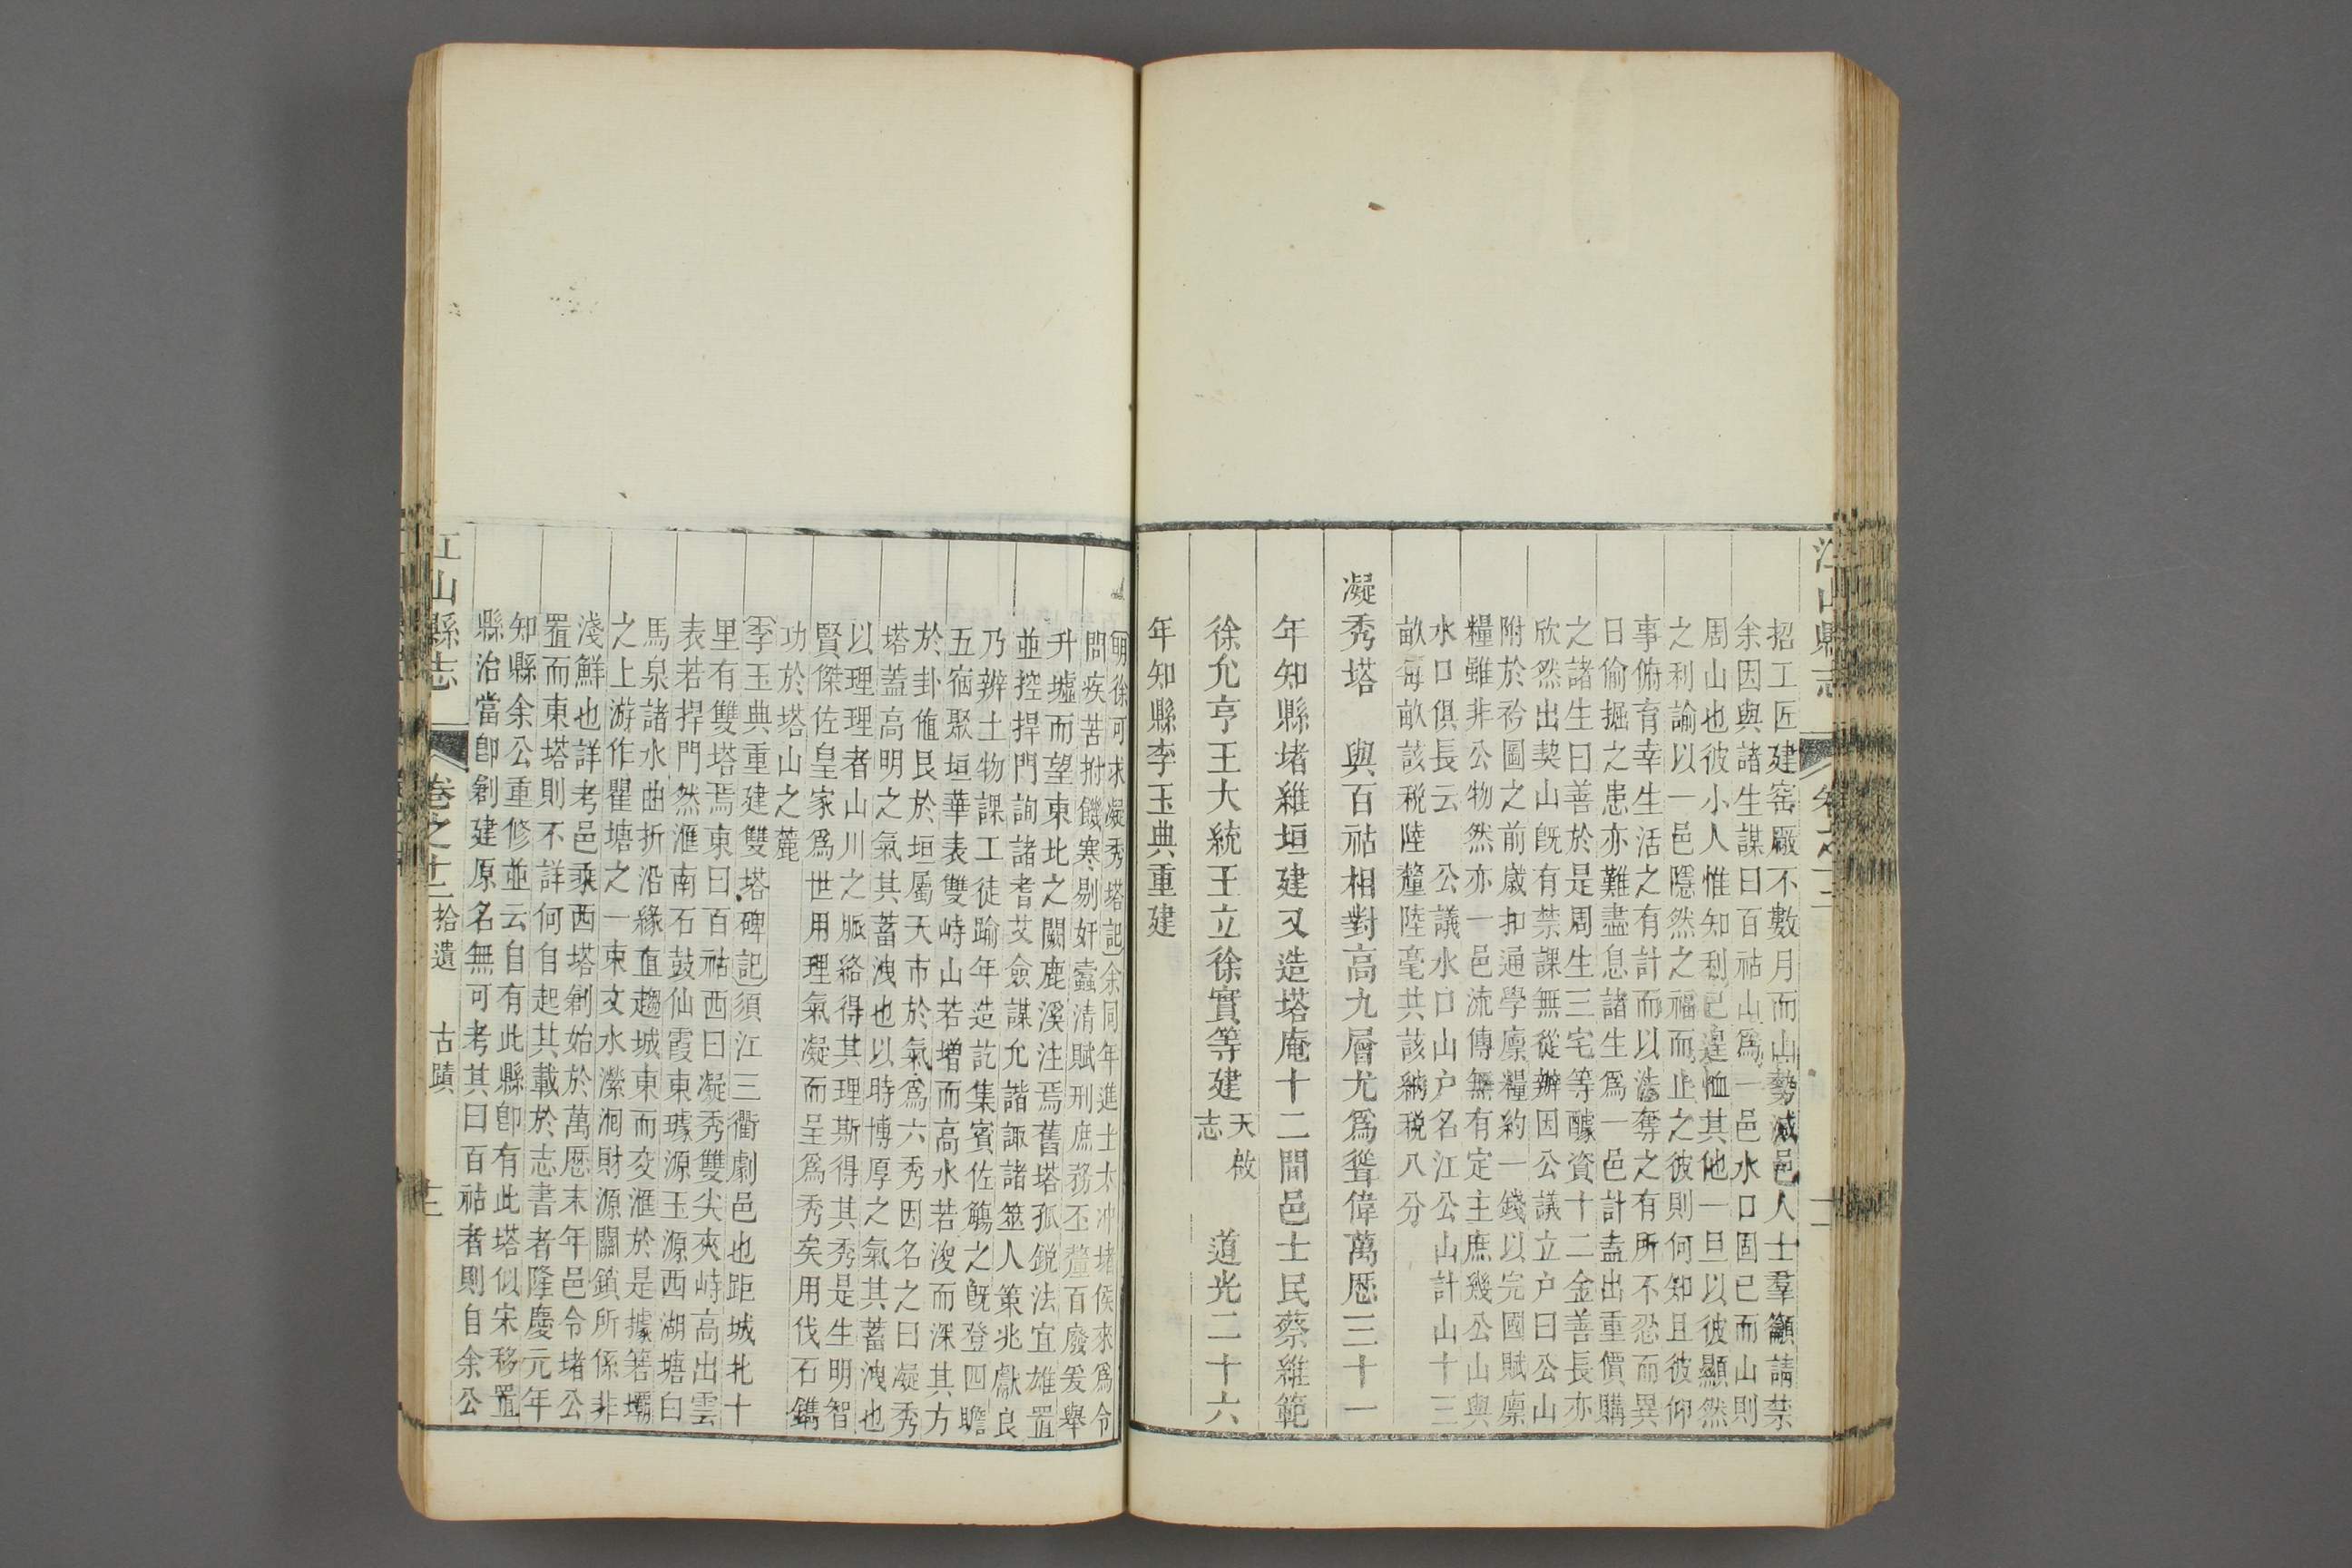 江山縣志
招工匠建窑廠不數月而山勢減邑人士羣籲請禁
余因與諸生謀曰百祜山爲一邑水口固已而山則
周山也彼小人惟知利己遑恤其他一旦以彼顯然
之利諭以一邑隱然之福而止之彼則何知且彼仰
事俯育幸生活之有計而以浩奪之有所不忍而異
日偷掘之患亦難盡息諸生爲一邑計盍出重價購
之諸生曰善於是周生三宅等醵資十二金善長亦
欣然出契山旣有禁課無從辦因公議立户曰公山
附於衿圖之前歲扣通學廩糧約一錢以完國賦廩
糧雖非公物然亦一邑流傳無有定主庶幾公山與
水口俱長云　公議水口山户名江公山計山十三
畝每畝該税陸釐陸毫共該納税八分
凝秀塔　與百祜相對高九層尤爲聳偉萬厯三十一
年知縣堵維垣建又造塔庵十二間邑士民蔡維範
徐允亨王大統王立徐實等建天啟志　道光二十六
年知縣李玉典重建
明徐可求凝秀塔記余同年進士太冲堵侯來爲令
問疾苦拊饑寒剔奸蠹清賦刑庶務丕釐百廢爰舉
升墟而望東北之闕鹿溪注焉舊塔孤鋭法宜雄置
並控捍門詢諸耆艾僉謀允諧諏諸筮人策兆獻良
乃辨土物課工徒踰年造訖集賓佐觴之旣登四瞻
五宿聚垣華表雙峙山若增而高水若浚而深其方
於卦值艮於垣屬天市於氣爲六秀因名之曰凝秀
塔蓋高明之氣其蓄洩也以時博厚之氣其蓄洩也
以理理者山川之脈絡得其理斯得其秀是生明智
賢傑佐皇家爲世用理氣凝而呈爲秀矣用伐石鐫
功於塔山之麓
李玉典重建雙塔碑記須江三衢劇邑也距城北十
里有雙塔焉東曰百祜西曰凝秀雙尖夾峙高出雲
表若捍門然滙南石鼓仙霞東璩源玉源西湖塘白
馬泉諸水曲折沿緣直趨城東而交滙於是據箬壩
之上游作瞿塘之一束文水瀠洄財源關鎖所係非
淺鮮也詳考邑乘西塔剏始於萬厯末年邑令堵公
置而東塔則不詳何自起其載於志書者隆慶元年
知縣余公重修並云自有此縣卽有此塔似宋移置
縣治當卽剏建原名無可考其曰百祜者則自余公
江山縣志　卷之十二拾遺　古蹟　十二